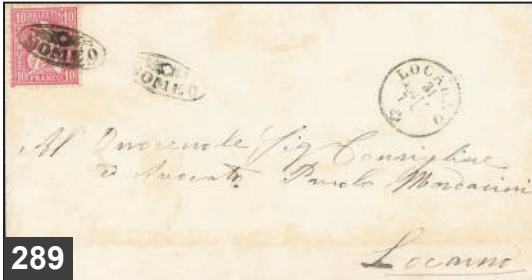 10 HELVETIA 10
10 FRANCO 10
SOMEO
SOMEO
LOCARNO
31
Al Onorevole Sig Consigliere
Avocato Paolo Mordasini
Locarno
289